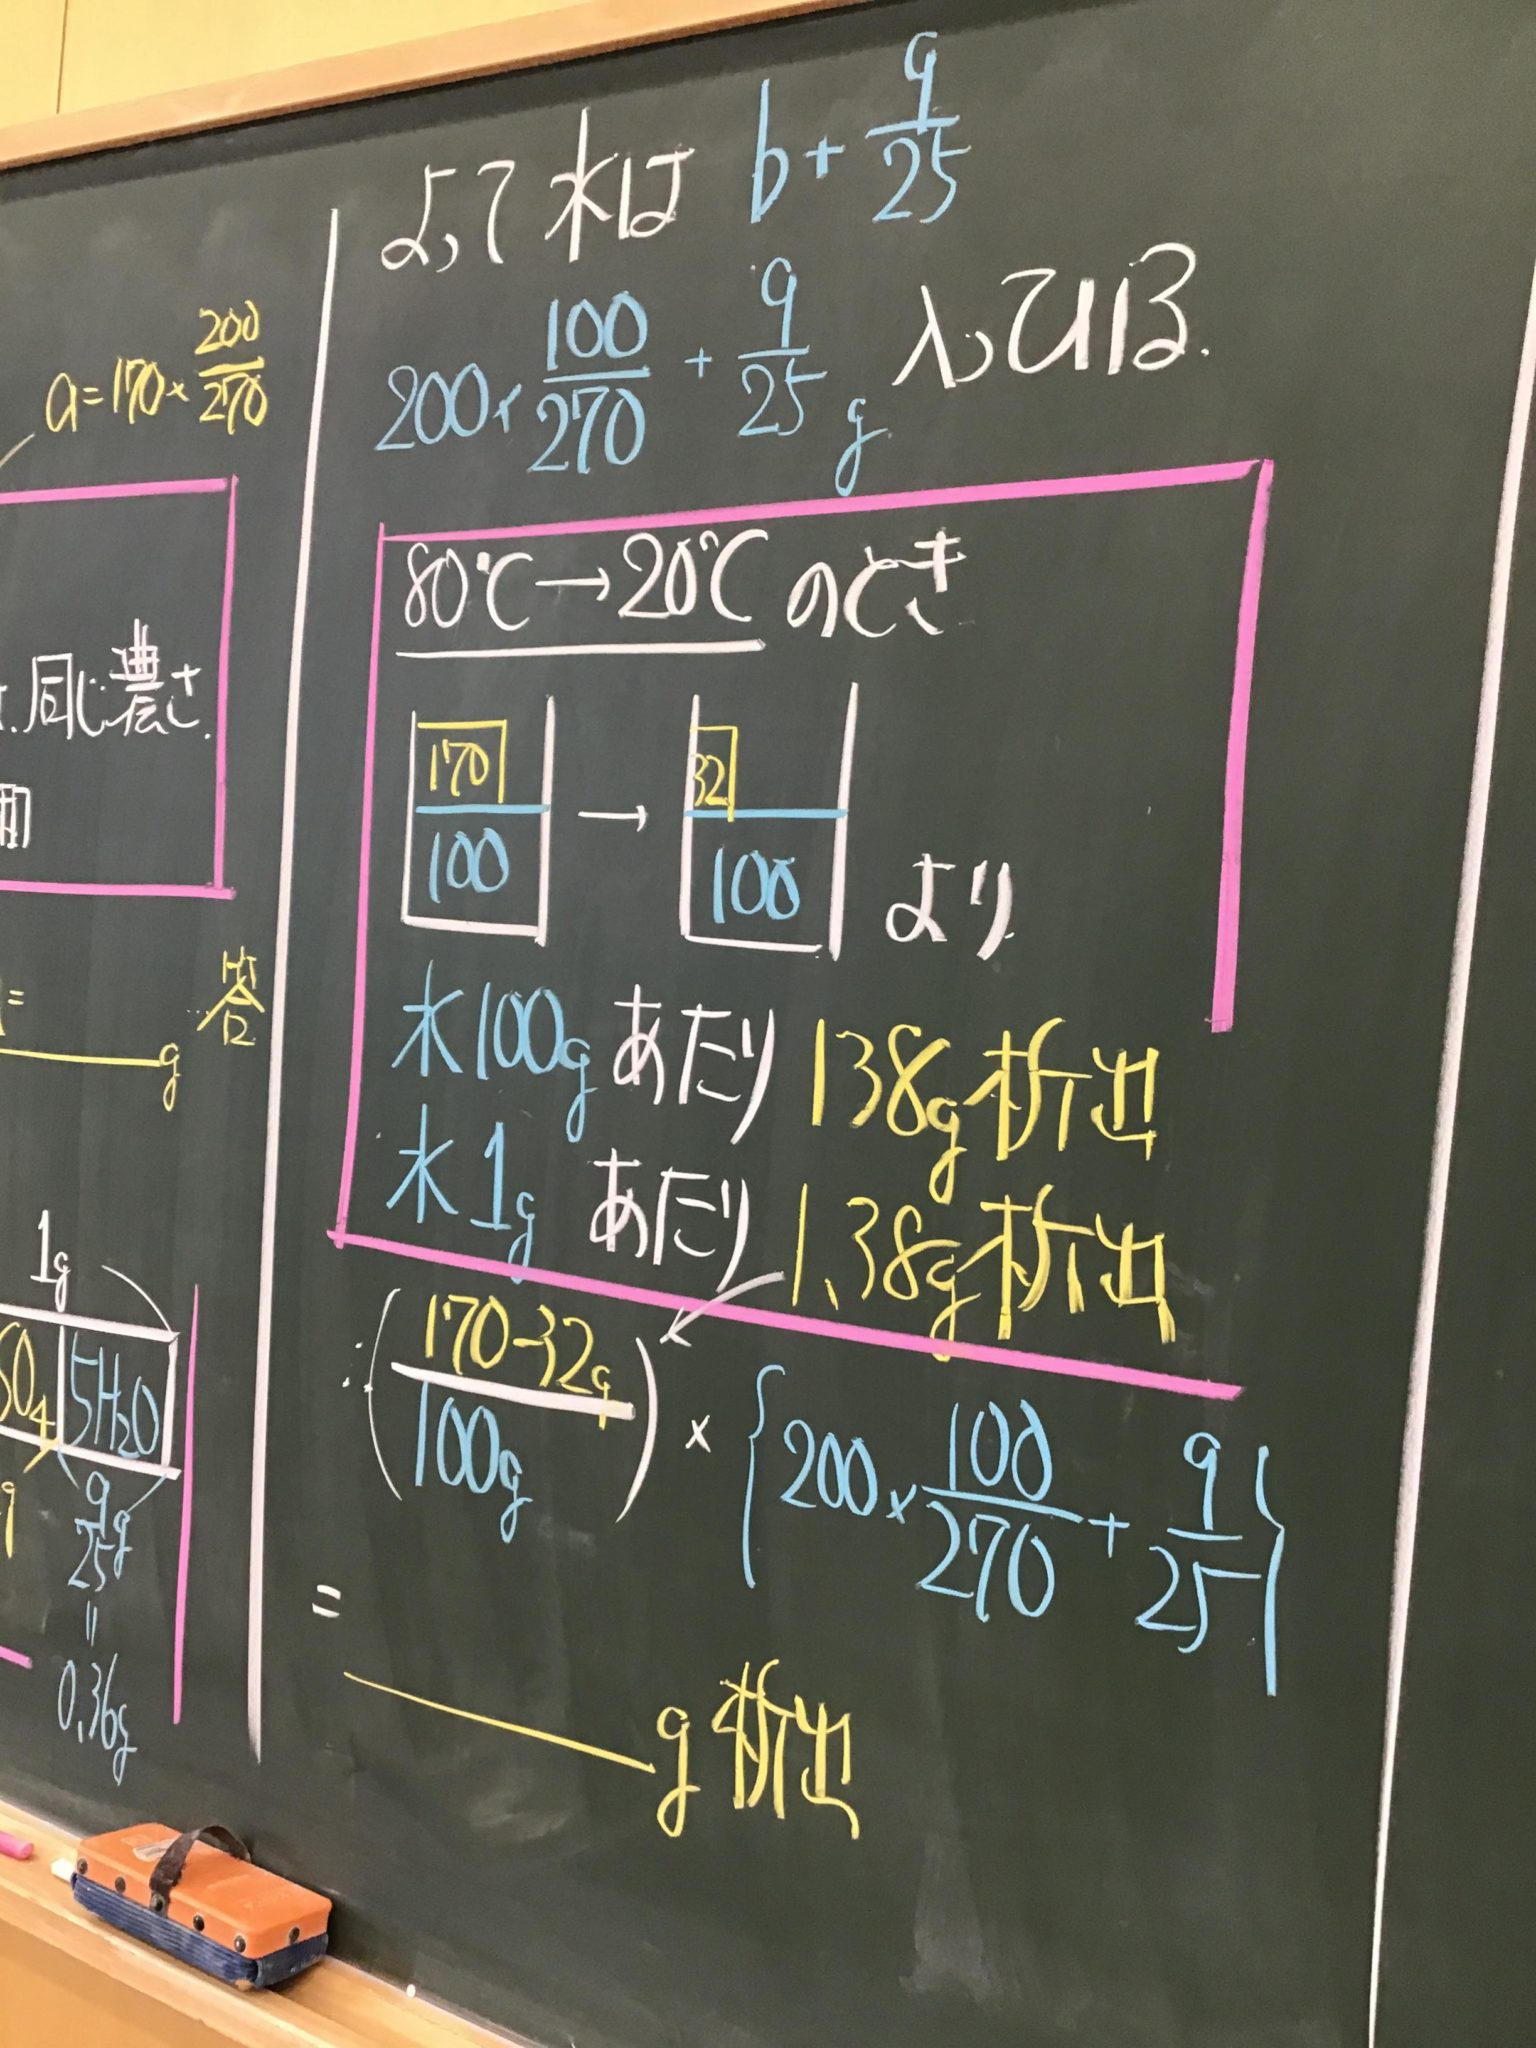 a=170×200/270
同じ濃さ.
答
g
1g
SO4 5H2O
9/25 g
=
0.36g
よって水は b+9/25
200×100/270+9/25 g 入っている.
80℃→20℃のとき
170 → 32
100 100 より
水100gあたり138g析出
水1gあたり1.38g析出
∴(170-32g/100g)×{200×100/270+9/25}
=
g析出